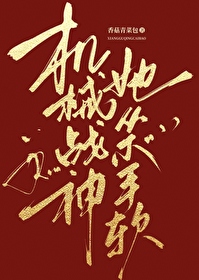 香菇青菜包 著
XIANGGUQINGCAIBAO
机械战神
她
手软